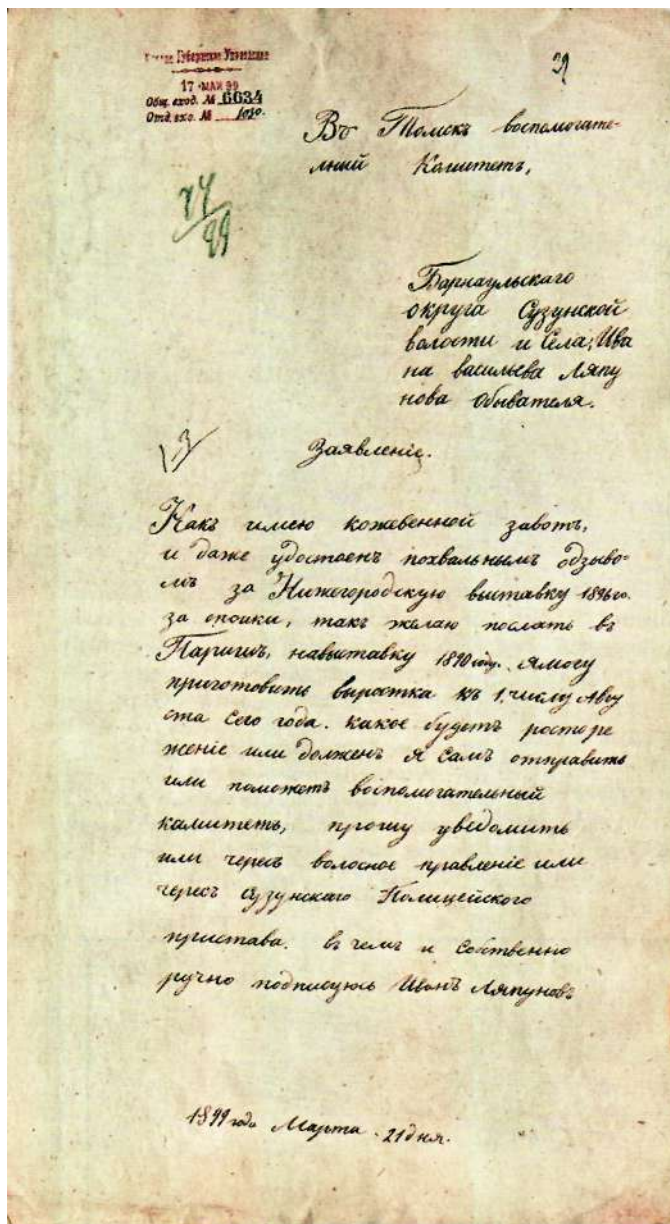 Томское Губернское Управленіе
39
17 МАЯ 99
Общ. вход. № 6634
Отд. вхо. № 1030.
Въ Томскъ воспомогате-
лный Комитетъ,
74/99
Барнаульскаго
округа Сузунской
волости и Села, Ива
на васильева Ляпу
нова Обывателя.
Заявленіе.
Какъ имею кожевенной завотъ,
и даже удостоенъ похвальнымъ одзыво-
мъ за Нижегородскую выставку 1896 го.
за опоики, такъ желаю послать въ
Парижъ, навыставку 1890 году. Ямогу
приготовить выростка къ 1. числу Авгу
ста сего года. какое будетъ росторе
жение или долженъ я самъ отправить
или поможетъ воспомогательный
камитетъ, прошу уведомить
или чересъ волосное правленіе или
чересъ Сузунскаго Полицейского
пристава. въ чемъ и собственно
ручно подписуюсь Иванъ Ляпуновъ
1899 года Марта 21 дня.